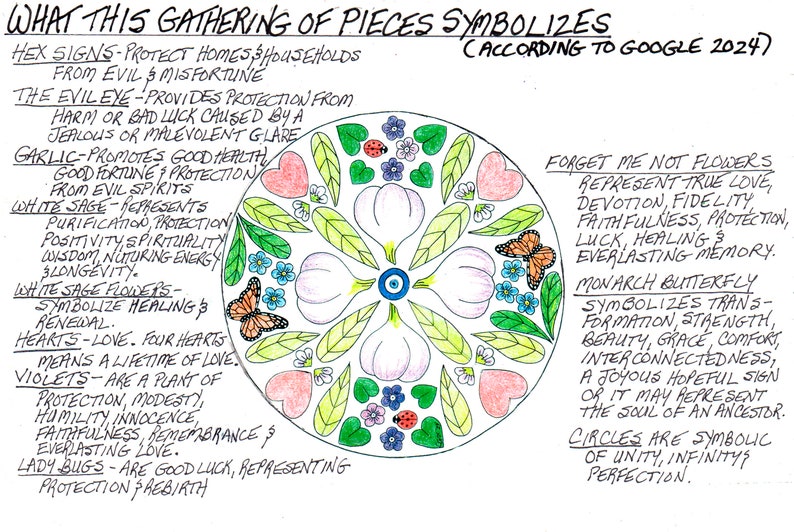 WHAT THIS GATHERING OF PIECES SYMBOLIZES
(ACCORDING TO GOOGLE 2024)
HEX SIGNS - PROTECT HOMES & HOUSEHOLDS
FROM EVIL & MISFORTUNE
THE EVIL EYE - PROVIDES PROTECTION FROM
HARM OR BAD LUCK CAUSED BY A
JEALOUS OR MALEVOLENT GLARE
GARLIC - PROMOTES GOOD HEALTH,
GOOD FORTUNE & PROTECTION
FROM EVIL SPIRITS
WHITE SAGE - REPRESENTS
PURIFICATION, PROTECTION,
POSITIVITY, SPIRITUALITY
WISDOM, NUTURING ENERGY
& LONGEVITY.
WHITE SAGE FLOWERS -
SYMBOLIZE HEALING &
RENEWAL.
HEARTS - LOVE. FOUR HEARTS
MEANS A LIFETIME OF LOVE.
VIOLETS - ARE A PLANT OF
PROTECTION, MODESTY,
HUMILITY, INNOCENCE,
FAITHFULNESS, REMEMBRANCE &
EVERLASTING LOVE.
LADY BUGS - ARE GOOD LUCK, REPRESENTING
PROTECTION & REBIRTH
FORGET ME NOT FLOWERS
REPRESENT TRUE LOVE,
DEVOTION, FIDELITY,
FAITHFULNESS, PROTECTION,
LUCK, HEALING &
EVERLASTING MEMORY.
MONARCH BUTTERFLY
SYMBOLIZES TRANS-
FORMATION, STRENGTH,
BEAUTY, GRACE, COMFORT,
INTERCONNECTEDNESS,
A JOYOUS HOPEFUL SIGN
OR IT MAY REPRESENT
THE SOUL OF AN ANCESTOR.
CIRCLES ARE SYMBOLIC
OF UNITY, INFINITY &
PERFECTION.